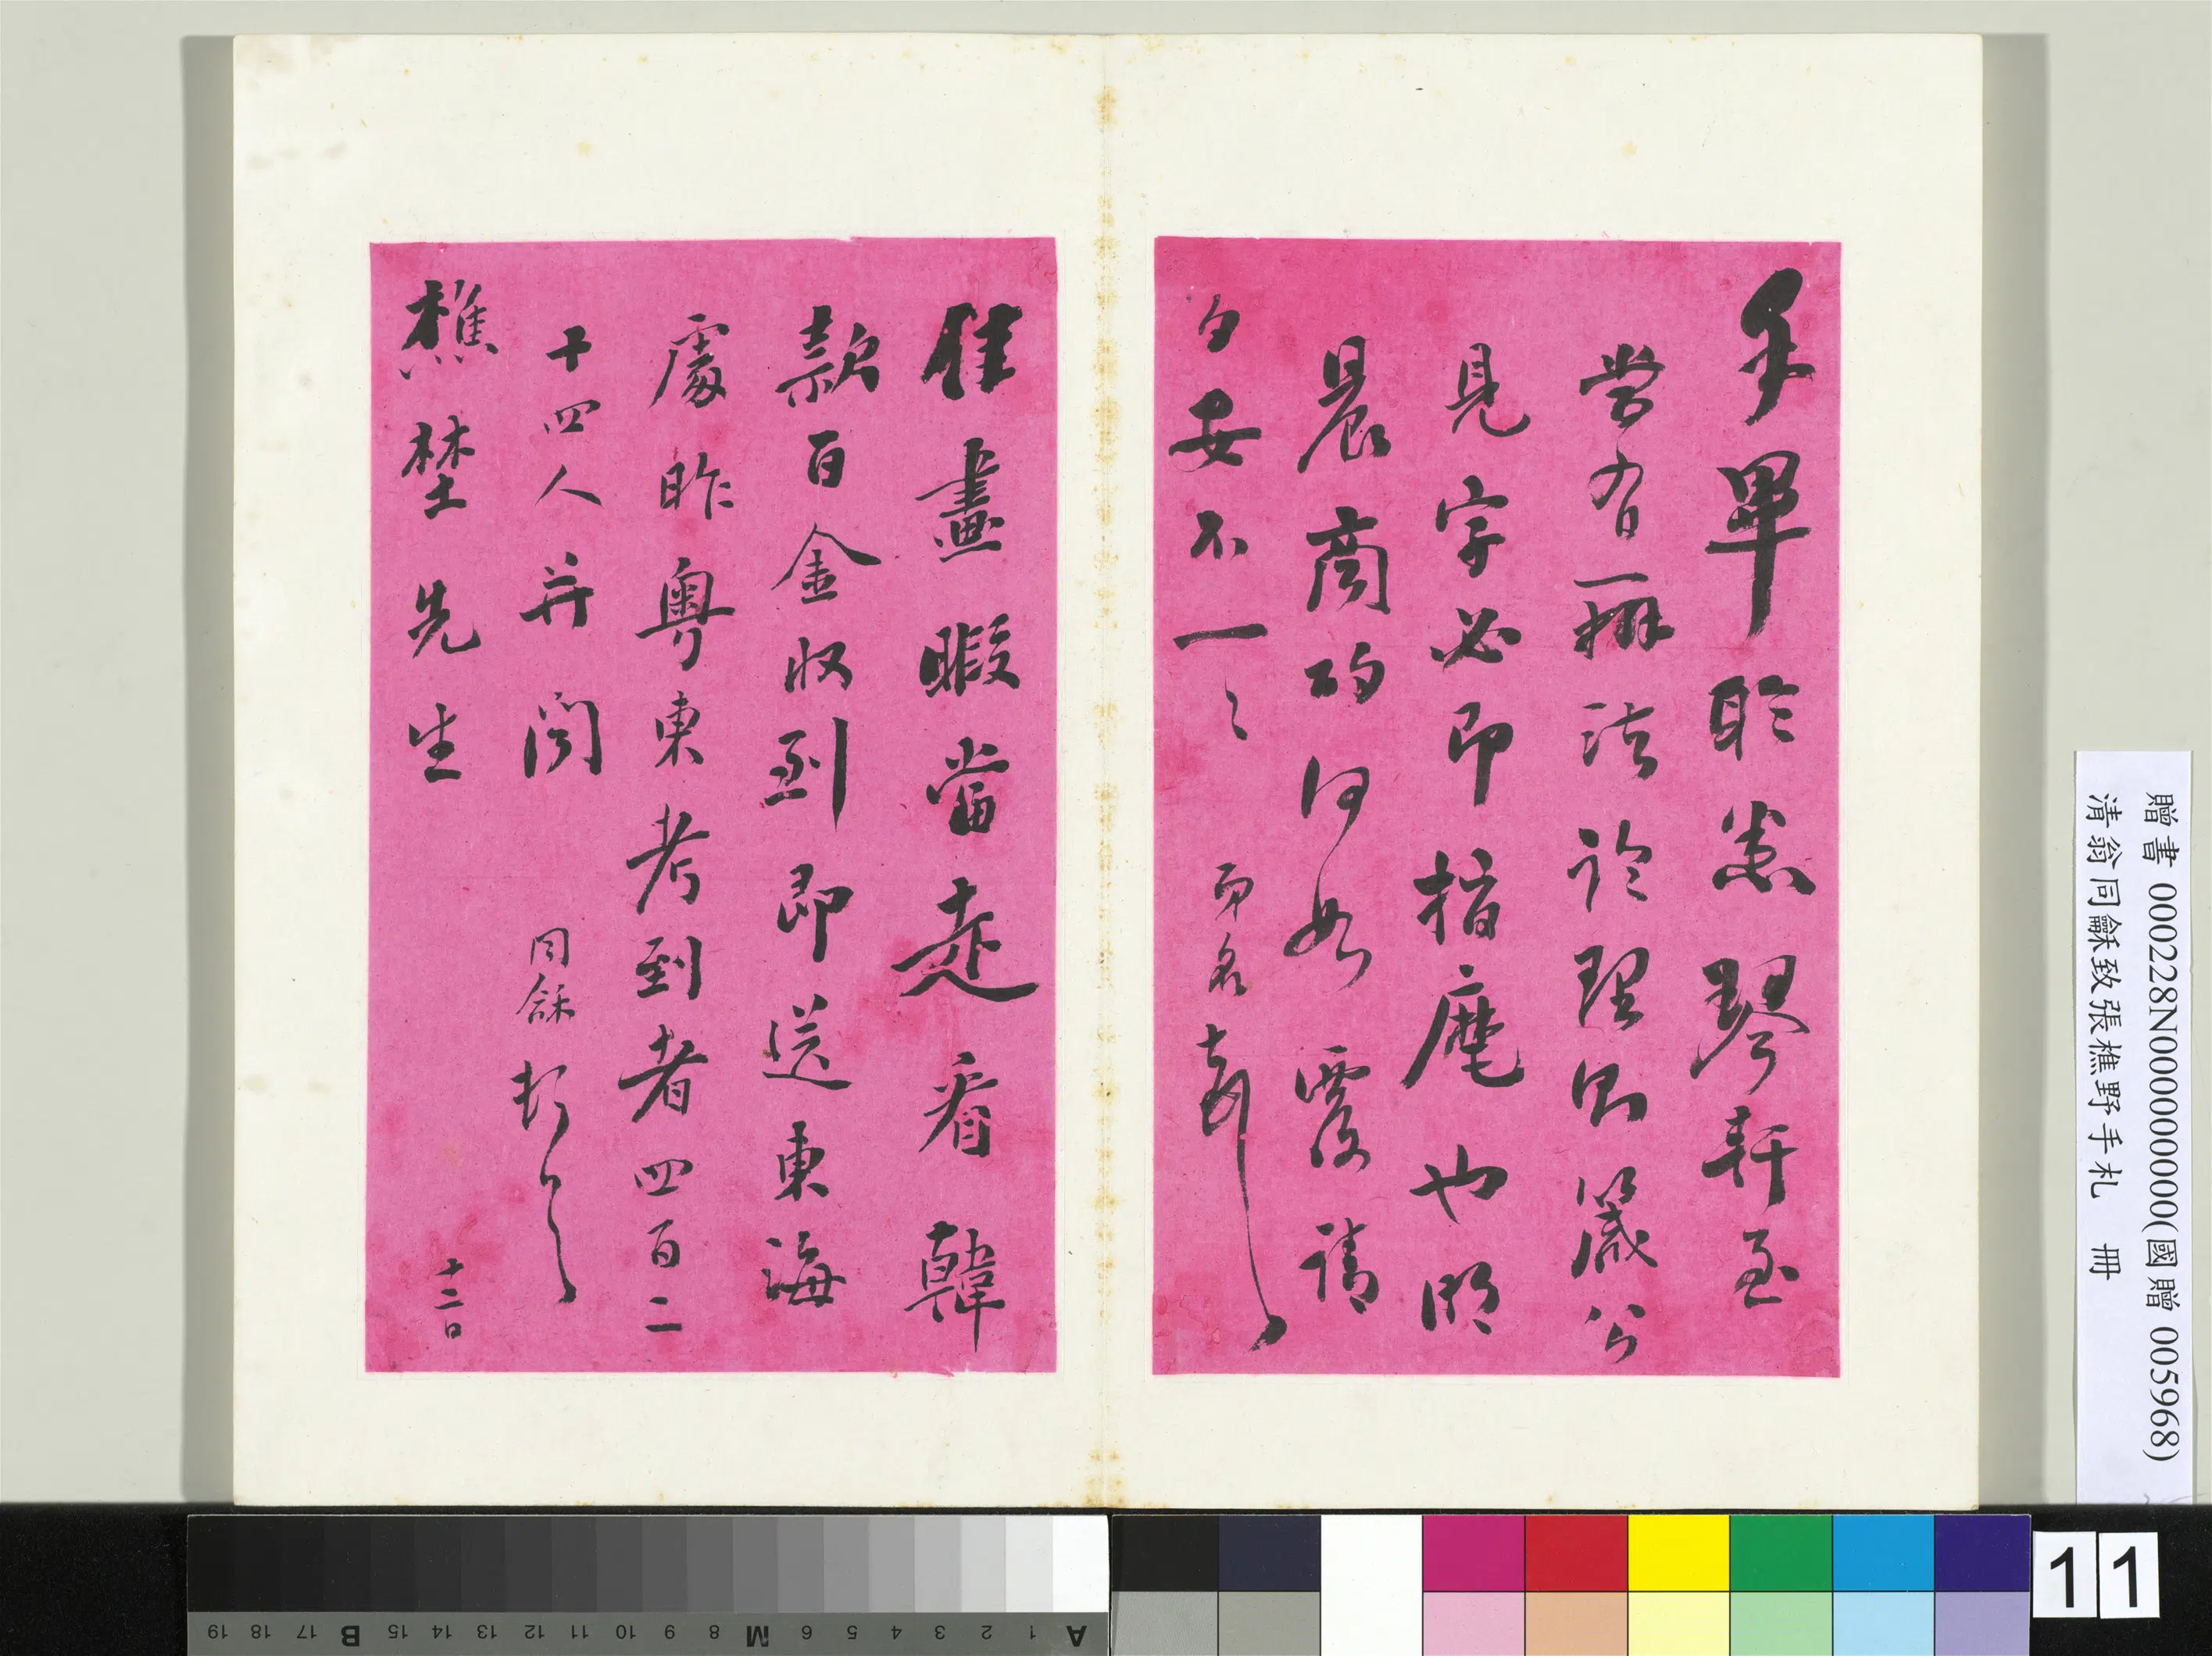 手畢聆悉琴軒至
當有一辦法論理則箴公
見字必即指麾也明
晨商酌何如覆請
勻安不一〻 即名頓首
佳畫暇當走看韓
款百金收到即送東海
處昨粵東考到者四百二
十四人并聞 同龢頓首
樵埜先生 十二日
贈書 000228N000000000(國贈 005968)
清翁同龢致張樵野手札 冊
11
A 1 2 3 4 5 6 M 8 9 10 11 12 13 14 15 B 17 18 19